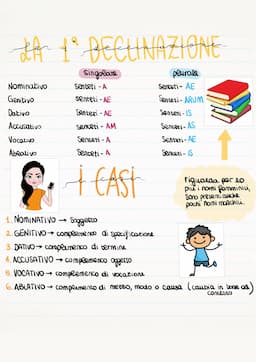 LA 1° DECLINAZIONE
Singolare plurale
Nominativo - A - AE
Genitivo - AE - ARUM
Dativo - AE - IS
Accusativo - AM - AS
Vocativo - A - AE
Ablativo - A - IS
I CASI
Riguarda per lo
più i nomi femminili,
sono presenti anche
pochi nomi maschili.
1. NOMINATIVO → Soggetto
2. GENITIVO → complemento di specificazione
3. DATIVO → complemento di termine
4. ACCUSATIVO → complemento oggetto
5. VOCATIVO → complemento di vocazione
6. ABLATIVO → complemento di mezzo, modo o causa (cambia in base al
contesto)